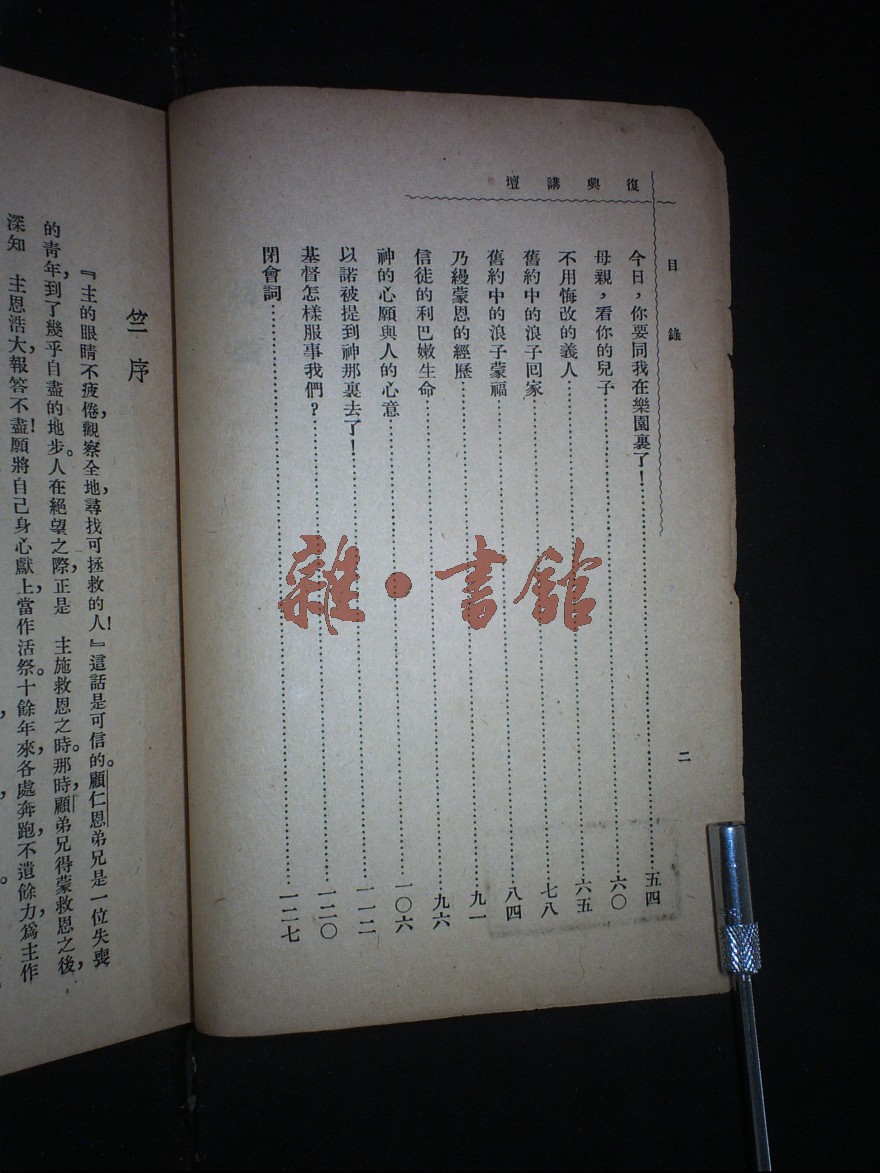 復興講壇
目錄
二
今日，你要同我在樂園裏了！⋯⋯五四
母親，看你的兒子⋯⋯六〇
不用悔改的義人⋯⋯六五
舊約中的浪子回家⋯⋯七八
舊約中的浪子蒙福⋯⋯八四
乃縵蒙恩的經歷⋯⋯九一
信徒的利巴嫩生命⋯⋯九六
神的心願與人的心意⋯⋯一〇六
以諾被提到神那裏去了！⋯⋯一一二
基督怎樣服事我們？⋯⋯一二〇
閉會詞⋯⋯一二七
雜·書館
竺序
『主的眼睛不疲倦，觀察全地，尋找可拯救的人！』這話是可信的。顧仁恩弟兄是一位失喪
的青年，到了幾乎自盡的地步。人在絕望之際，正是 主施救恩之時。那時，顧弟兄得蒙救恩之後，
深知 主恩浩大，報答不盡！願將自己身心獻上，當作活祭。十餘年來，各處奔跑，不遺餘力，爲主作